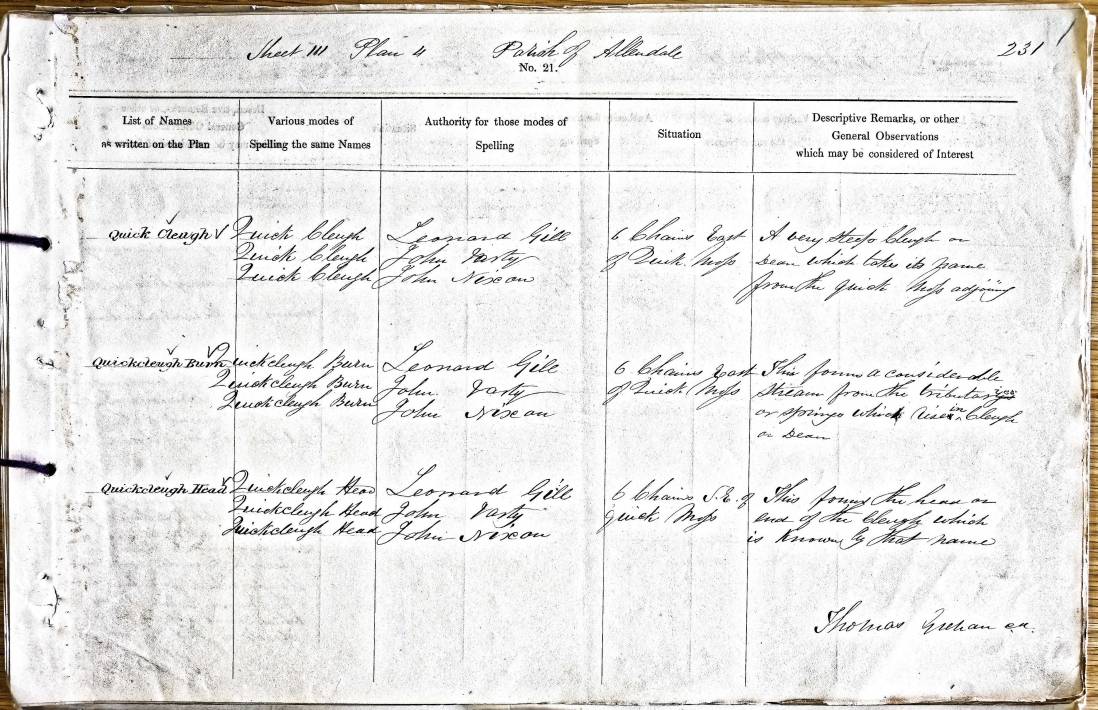 Sheet 111 Plan 4 Parish of Allendale 231
No. 21.
List of Names
as written on the Plan
Various modes of
Spelling the same Names
Authority for those modes of
Spelling
Situation
Descriptive Remarks, or other
General Observations
which may be considered of Interest
Quick Cleugh Quick Cleugh Leonard Gill 6 Chains East A very steep Cleugh or
Quick Cleugh John Varty of Quick Moss Dean which takes its name
Quick Cleugh John Nixon from the Quick Moss adjoining
Quickcleugh Burn Quickcleugh Burn Leonard Gill 6 Chains East This forms a considerable
Quickcleugh Burn John Varty of Quick Moss stream from the tributaries
Quickcleugh Burn John Nixon or springs which rise in Cleugh
or Dean
Quickcleugh Head Quickcleugh Head Leonard Gill 6 Chains S.E. of This forms the head or
Quickcleugh Head John Varty Quick Moss end of the Cleugh which
Quickcleugh Head John Nixon is known by that name
Thomas